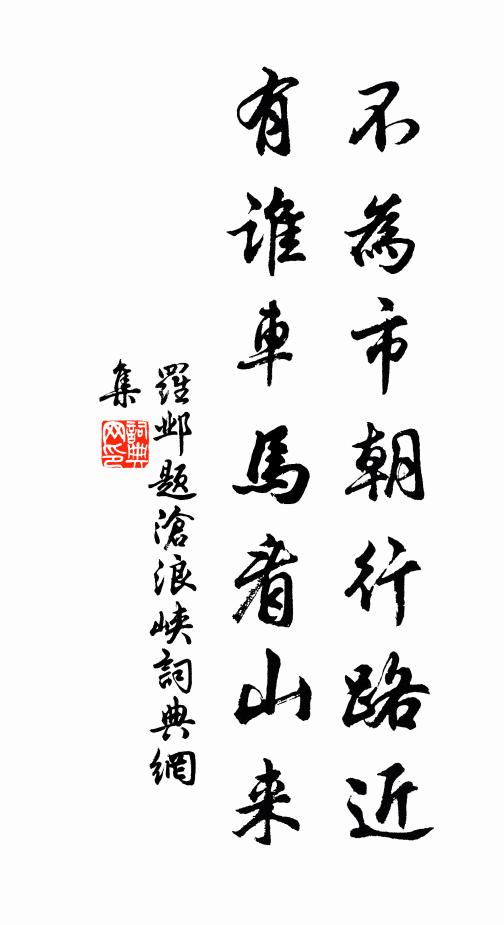 不為市朝行路近
有誰車馬看山来
羅鄴題滄浪峽詞典網
集
詞典网印